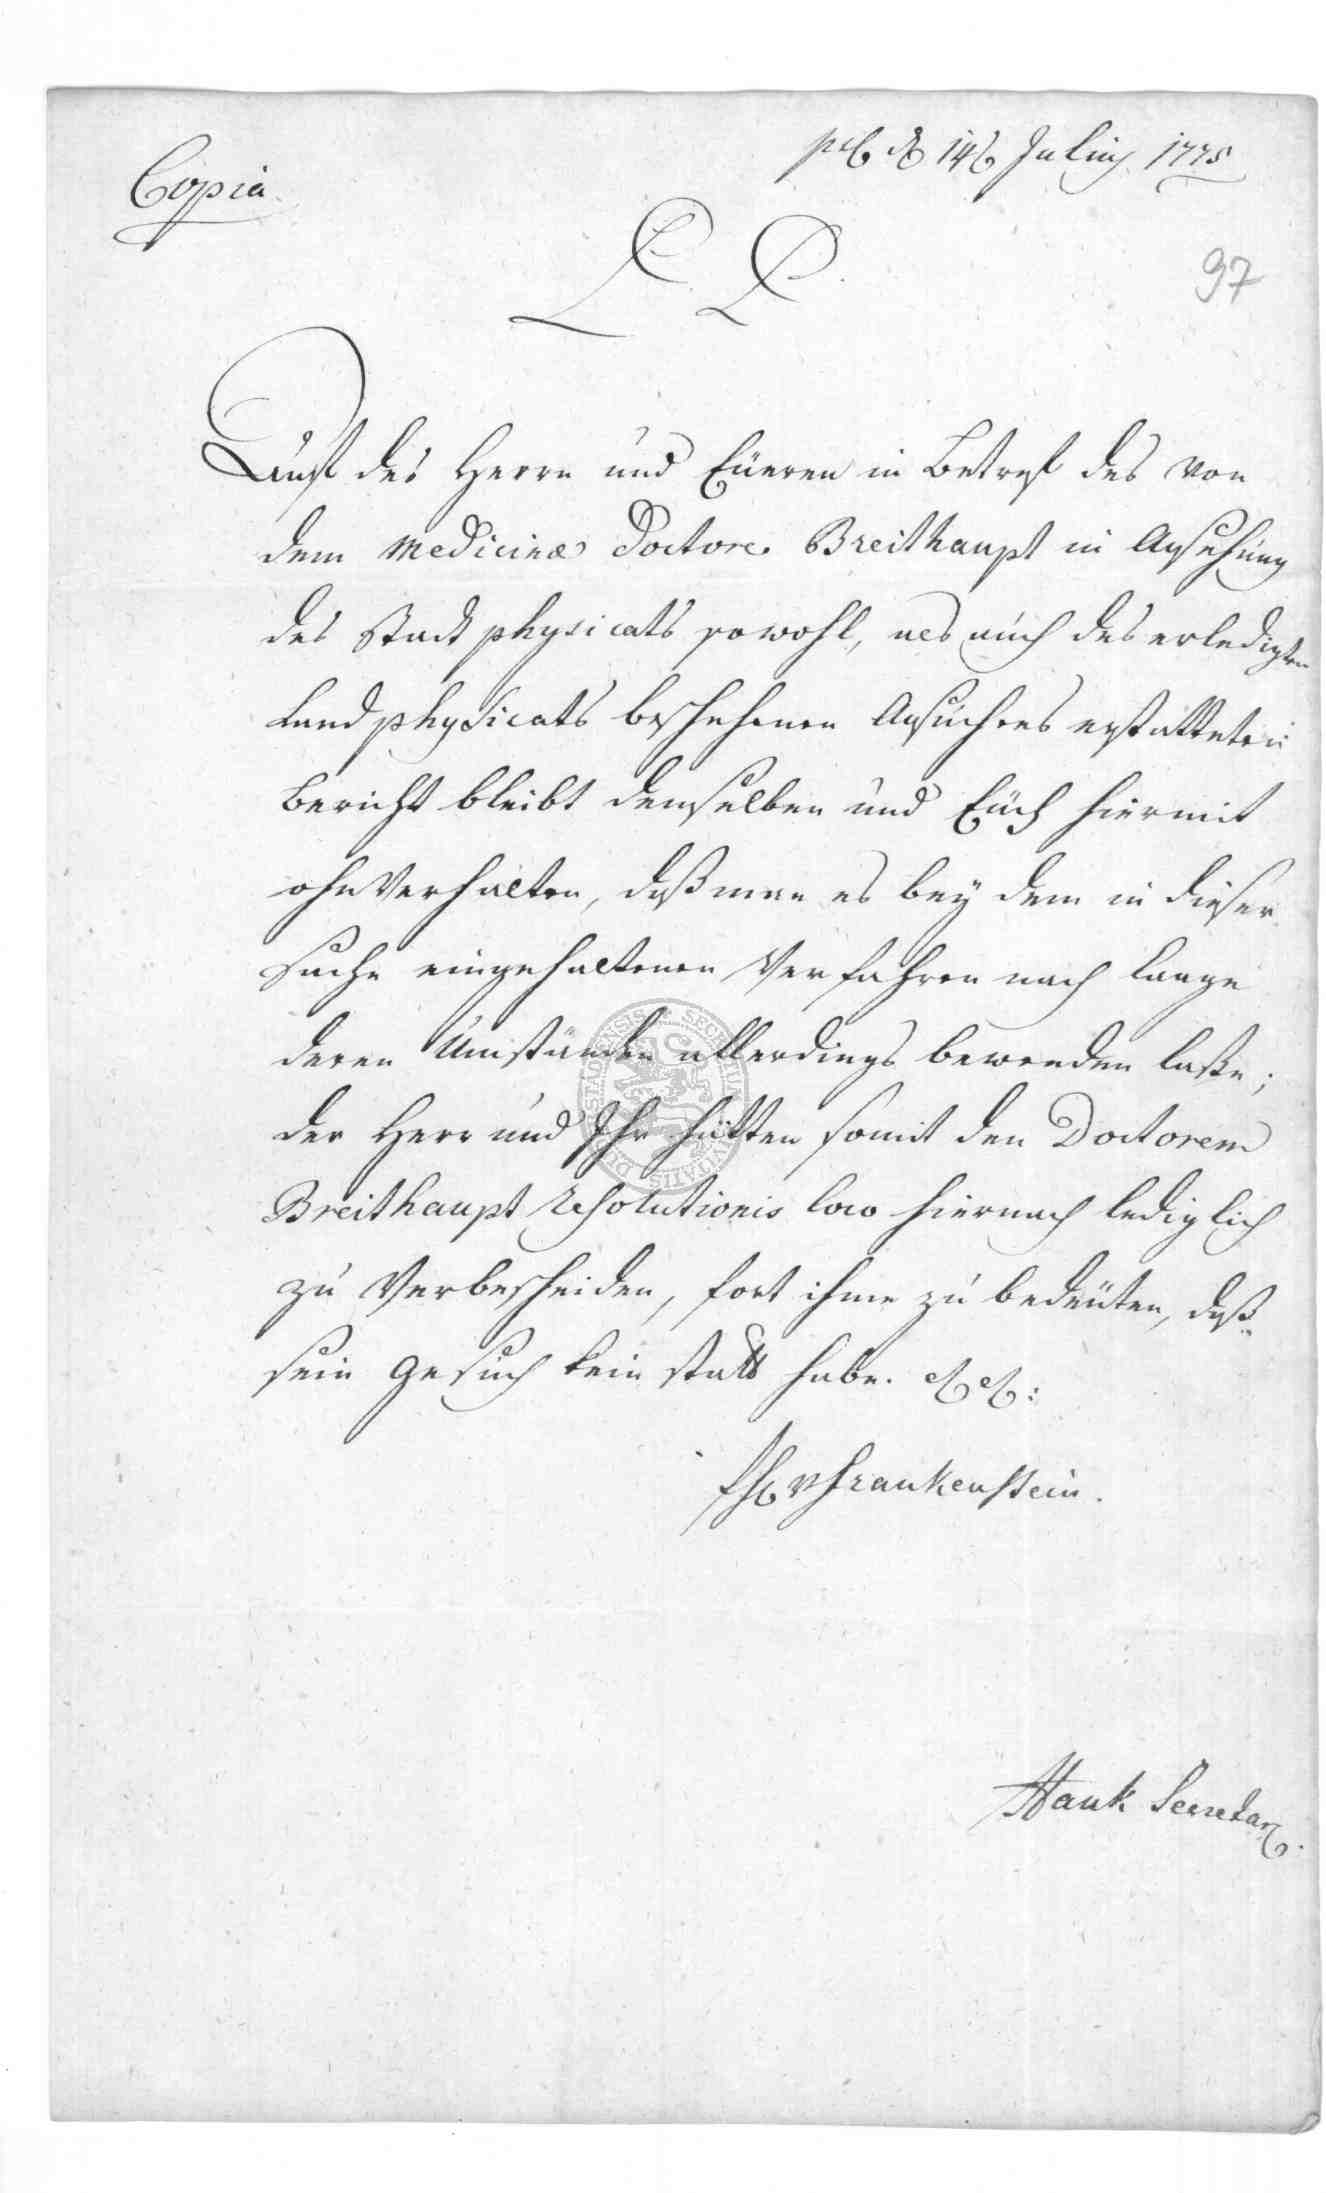 Copia
pcb d 14t Julius 1775
97
P. P.
Auf des Herrn und Eüeren in Betref des von
dem Medicinæ Doctore Breithaupt in Ansehung
des Stadt physicats sowohl, als auch des erledigten
Land physicats beschehenen Ansuchens erstatteten
Bericht bleibt demselben und Eüch hiermit
ohnverhalten, daß man es bey dem in dieser
Sache eingehaltenen Verfahren nach lange
deren Umständen allerdings bewenden laße;
der Herr und Ihr hätten somit den Doctorem
Breithaupt Resolutionis loco hiernach lediglich
zu Verbescheiden, fort ihme zu bedeüten, daß
sein Gesuch kein statt habe.
Fh v Frankenstein.
Hauk Secretar
SECRETUM CIVITATIS